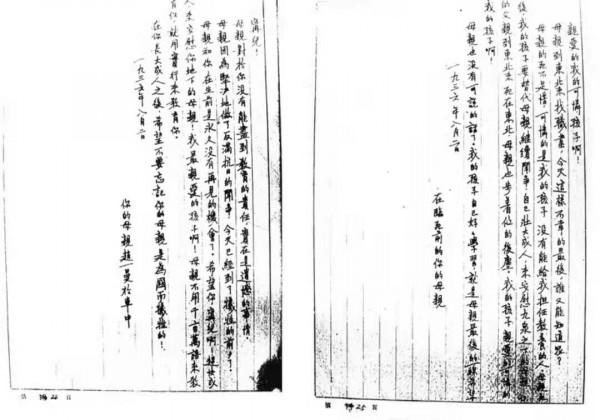 親愛的可憐的孩子啊!
母親到東北來找職業,今天這樣不幸的最後,誰又能知道呢?
母親的死不足惜,可憐的是我的孩子,沒有能給我担任教養的人。母親死
後,我的孩子要替代母親繼續鬥爭,自己壯大成人,來安慰九泉之下的母親!你
的父親到東北來死在東北,母親也步着他的後塵。我的孩子,親愛的可憐的
我的孩子啊!
母親也沒有可說的話了,我的孩子自己好好學習,就是母親最後的一線希望
一九三六年八月二日
在臨死前的你的母親
第 25 頁
寧兒!
母親對於你沒有能盡到教育的責任,實在是遺憾的事情。
母親因為堅決地做了反滿抗日的鬥爭,今天已經到了犧牲的前夕了。
母親和你在生前是永久沒有再見的機會了。希望你,寧兒啊!趕快成
人,來安慰你地下的母親!我最親愛的孩子啊!母親不用千言萬語來教
育你,就用實行來教育你。
在你長大成人之後,希望不要忘記你的母親是為國而犧牲的!
一九三六年八月二日
你的母親趙一曼於車中
第 26 頁